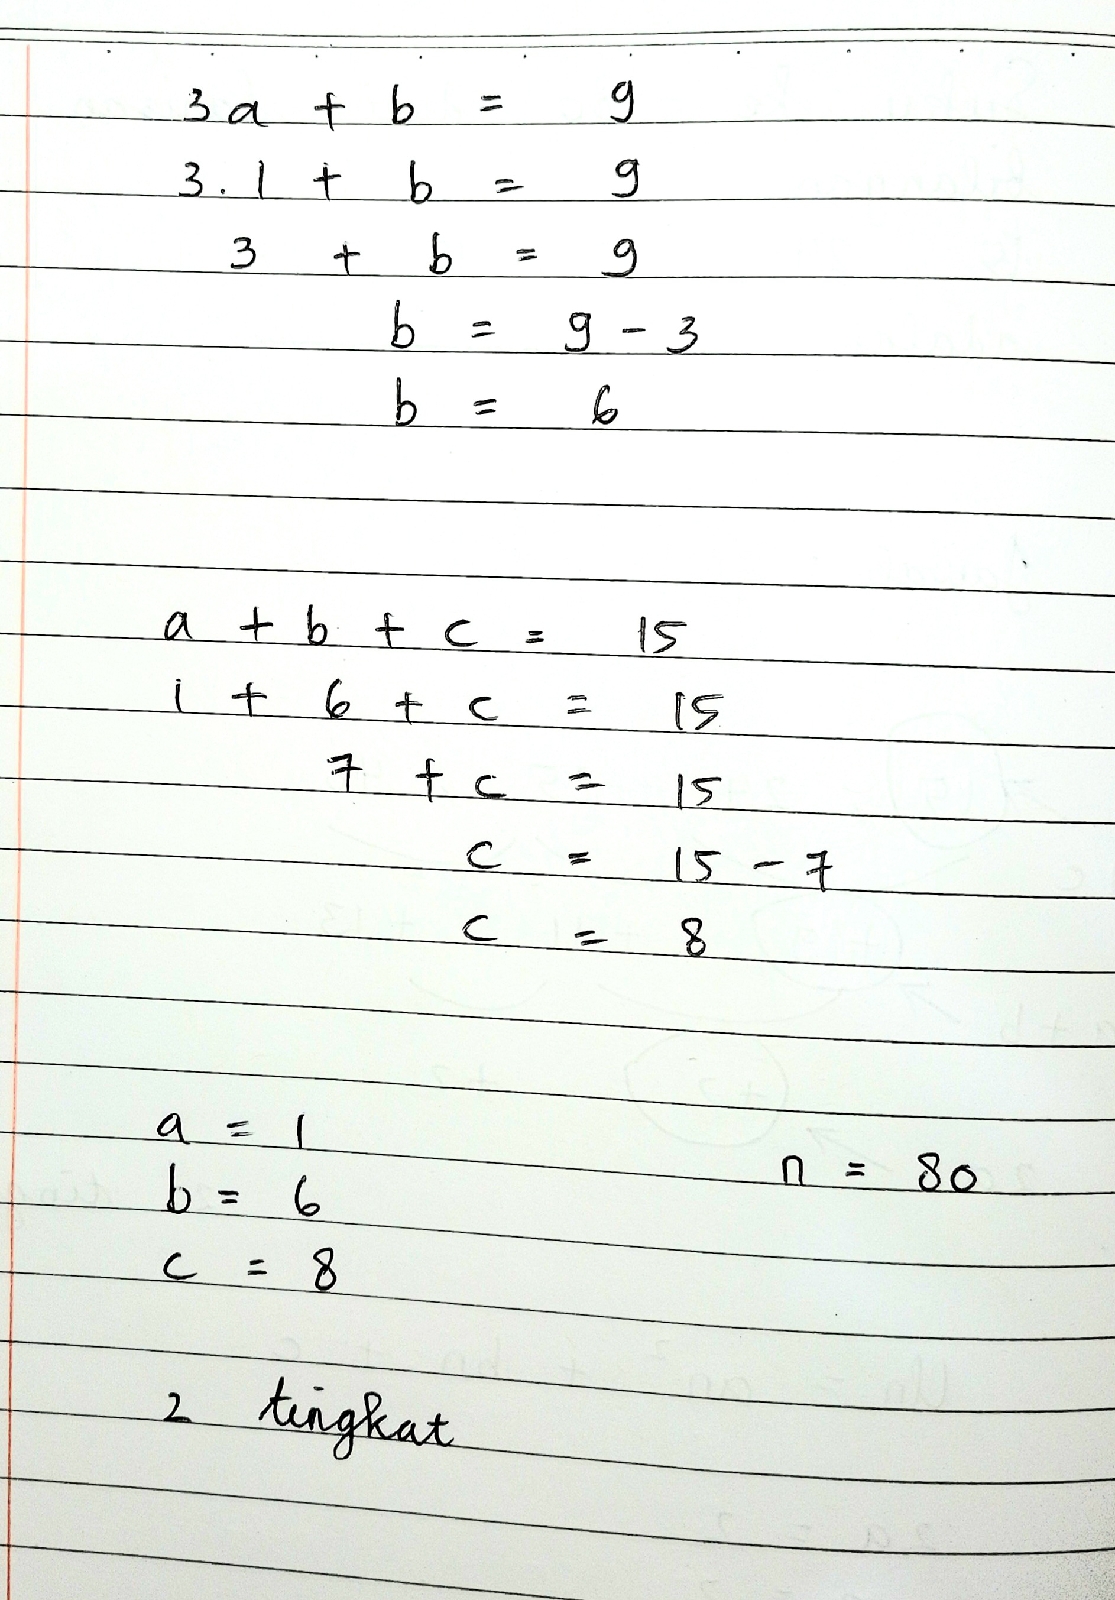 3a + b = 9
3.1 + b = 9
3 + b = 9
b = 9 - 3
b = 6
a + b + c = 15
1 + 6 + c = 15
7 + c = 15
c = 15 - 7
c = 8
a = 1
b = 6
n = 80
c = 8
2 tingkat